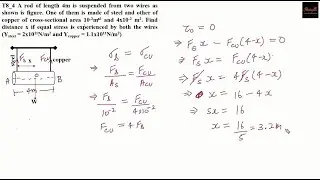 Y8_4 A rod of length 4m is suspended from two wires as
shown is figure. One of them is made of steel and other of
copper of cross-sectional area 10⁻²m² and 4x10⁻² m². Find
distance x if equal stress is experienced by both the wires
(Y_steel = 2x10¹¹N/m² and Y_copper = 1.1x10¹¹N/m²)
steel F_s F_cu copper
x
A B
4m
W
σ_s = σ_cu
⇒ F_s/A_s = F_cu/A_cu
⇒ F_s/10⁻² = F_cu/4x10⁻²
F_cu = 4F_s
τ_0 = 0
F_s x - F_cu(4-x) = 0
⇒ F_s x = F_cu(4-x)
⇒ F_s x = 4F_s(4-x)
⇒ x = 16-4x
⇒ 5x = 16
x = 16/5 = 3.2m